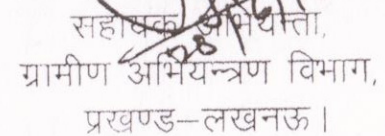 सहायक अभियन्ता,
ग्रामीण अभियन्त्रण विभाग,
प्रखण्ड–लखनऊ।